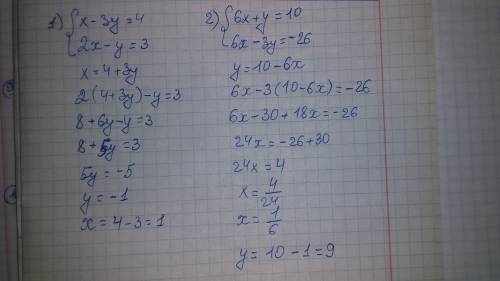 1) { x - 3y = 4
2x - y = 3
x = 4 + 3y
2(4 + 3y) - y = 3
8 + 6y - y = 3
8 + 5y = 3
5y = -5
y = -1
x = 4 - 3 = 1
2) { 6x + y = 10
6x - 3y = -26
y = 10 - 6x
6x - 3(10 - 6x) = -26
6x - 30 + 18x = -26
24x = -26 + 30
24x = 4
x = 4/24
x = 1/6
y = 10 - 1 = 9